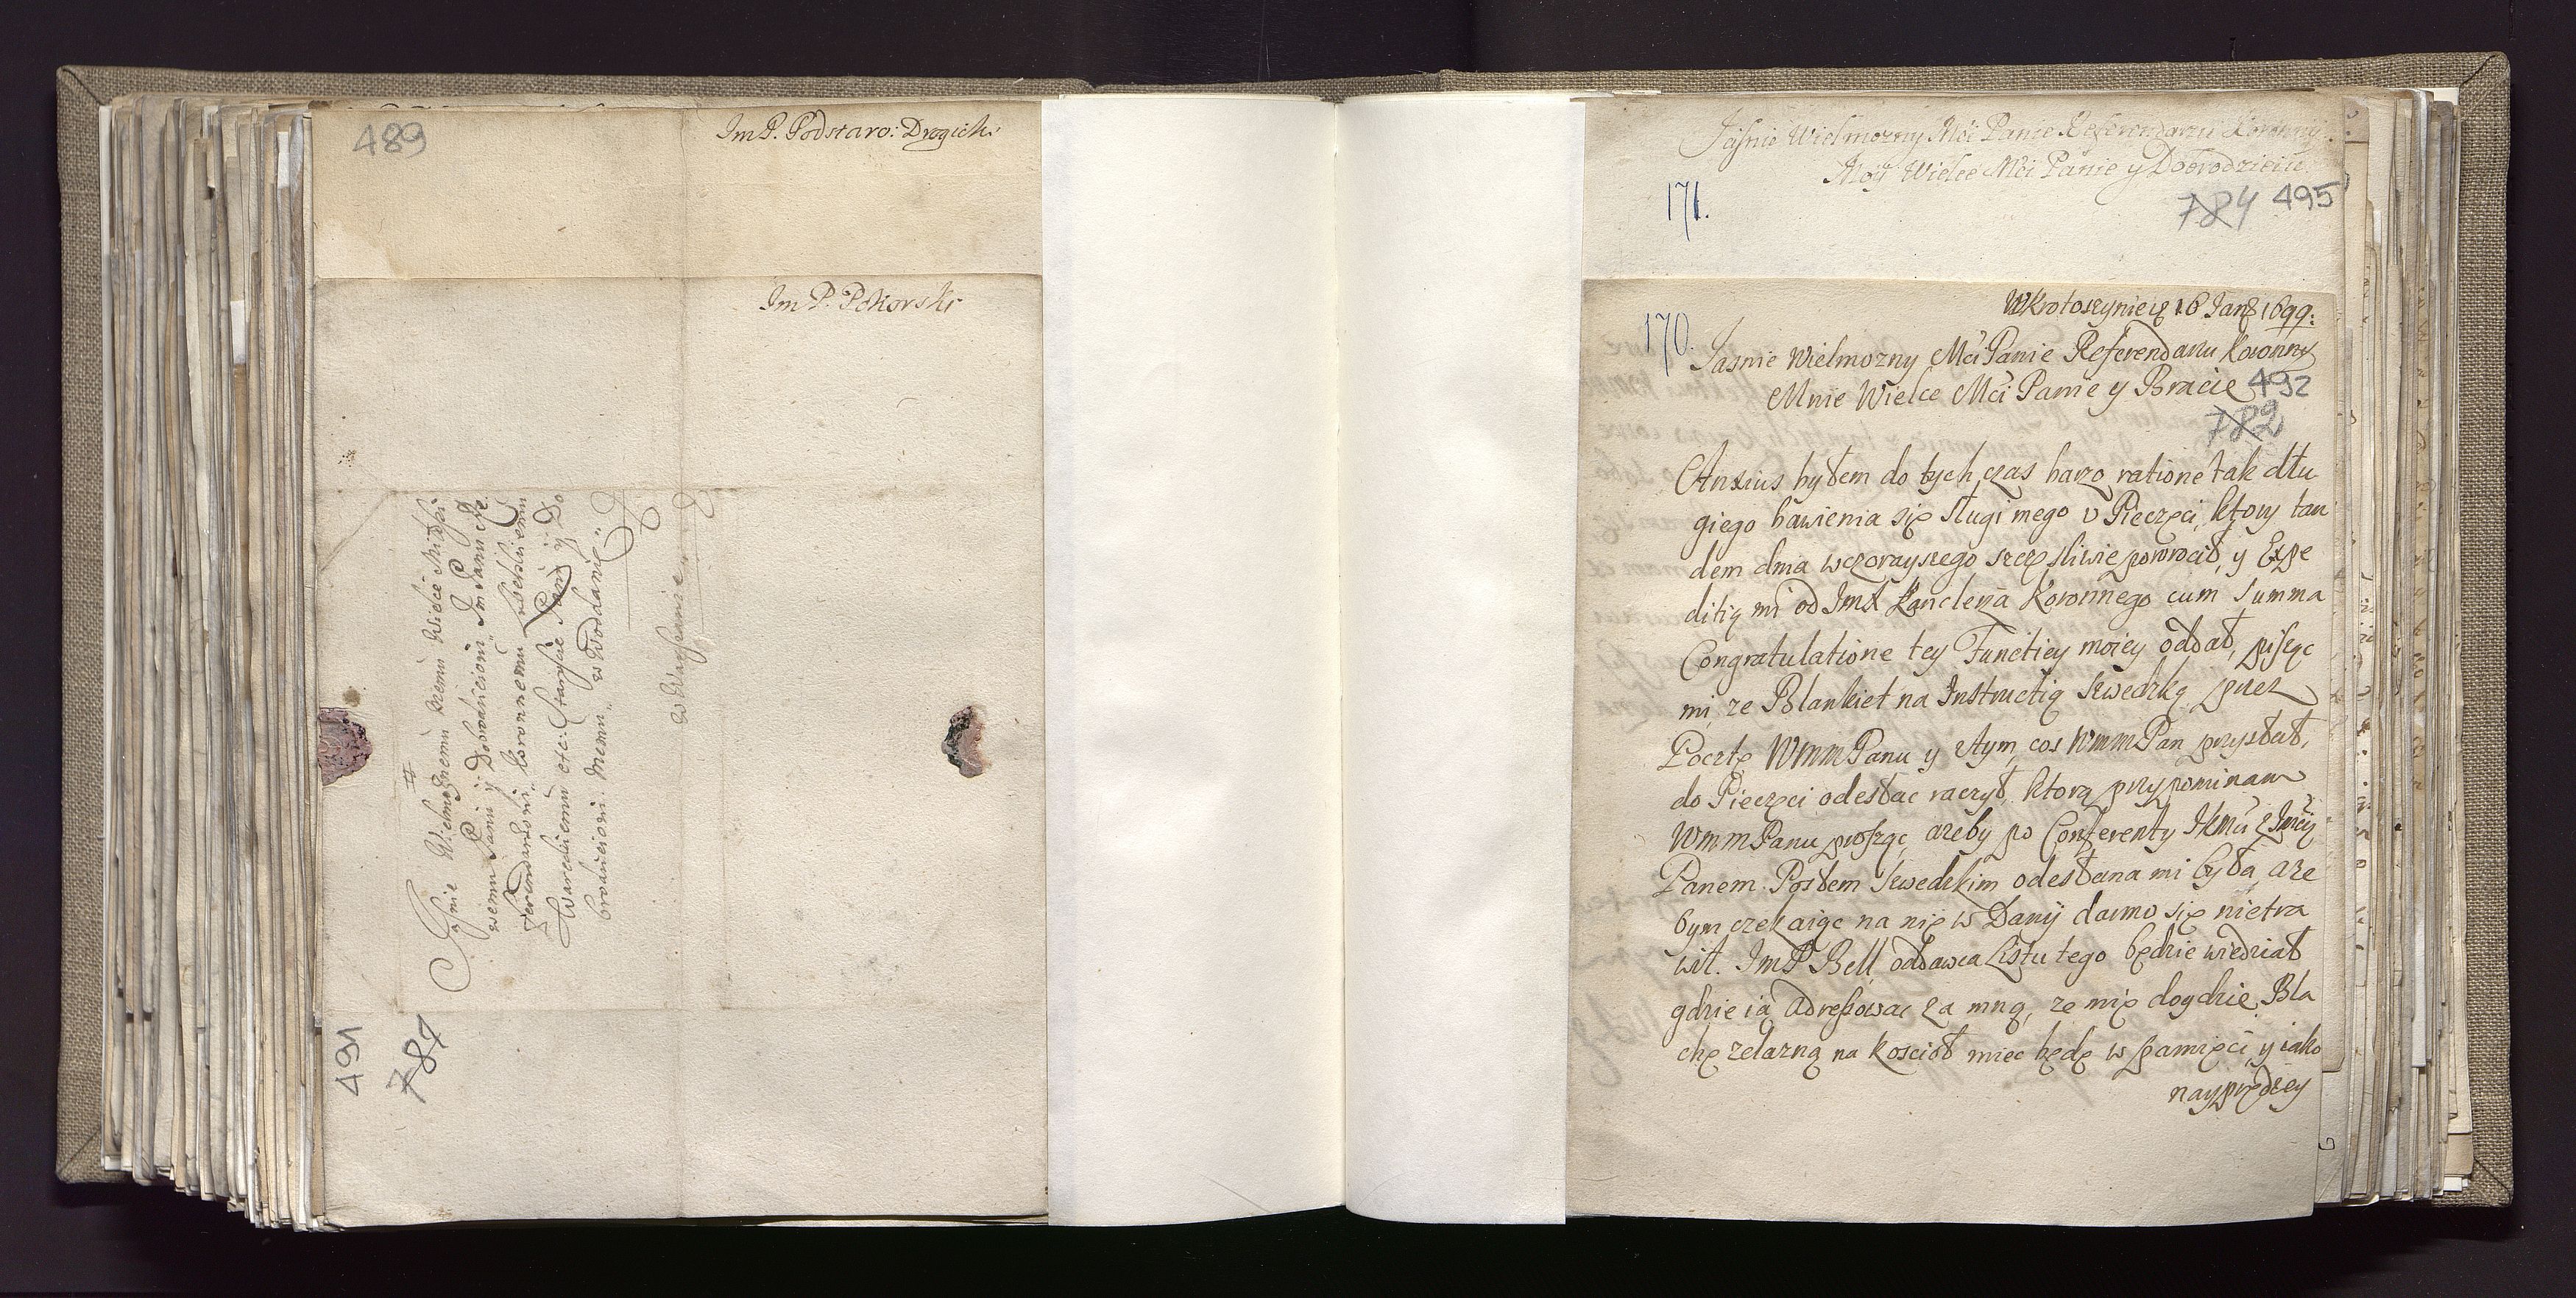 489
Im P. Podstaro: Drogicki
Im P. Pokorski
Jasnie Wielmoznemu memu Wielce Msci
wemu Panu y Dobrodzieiowi Im Panu Re
ferendarzowi Koronnemu
etc: Staroscie Panu y Do
brodzieiowi memu w oddanie
w Warszawie
491
781
Jasnie Wielmozny Mci Panie Referendarzu Koronny
Moy Wielce Mci Panie y Dobrodzieiu
171.
784 495
W Krotoszynie 16 Jan: 1699:
170.
Jasnie Wielmozny Mci Panie Referendarzu Koronny
Mnie Wielce Mci Panie y Bracie 492
782
Anxius byłem do tych czas barzo ratione tak dłu
giego bawienia się sługi mego v Pieczęci, ktory tan
dem dnia wczorayszego szczęsliwie powrocił, y Expe
ditią mi od Jmsci Kanclerza Koronnego cum summa
Congratulatione tey Functiey moiey oddał, pisząc
mi, ze Blankiet na Instructią szwedzką przez
Pocztę WmmPanu y z tym, cos WmmPan przysłał,
do Pieczęci odesłac raczył, ktorą przypominam
WmmPanu prosząc, azeby po Conferenty Jkmci z Jmcią
Panem Posłem szwedzkim odesłana mi była, aze
bym czekaiąc na nię w Danij darmo się nie tra
wił. Im P Bell oddawca Listu tego będzie wiedział
gdzie ią adressowac za mną, ze mię dogdzie. Bla
chę zelazną na koscioł miec będę w pamięci, y iako
nayprędzey